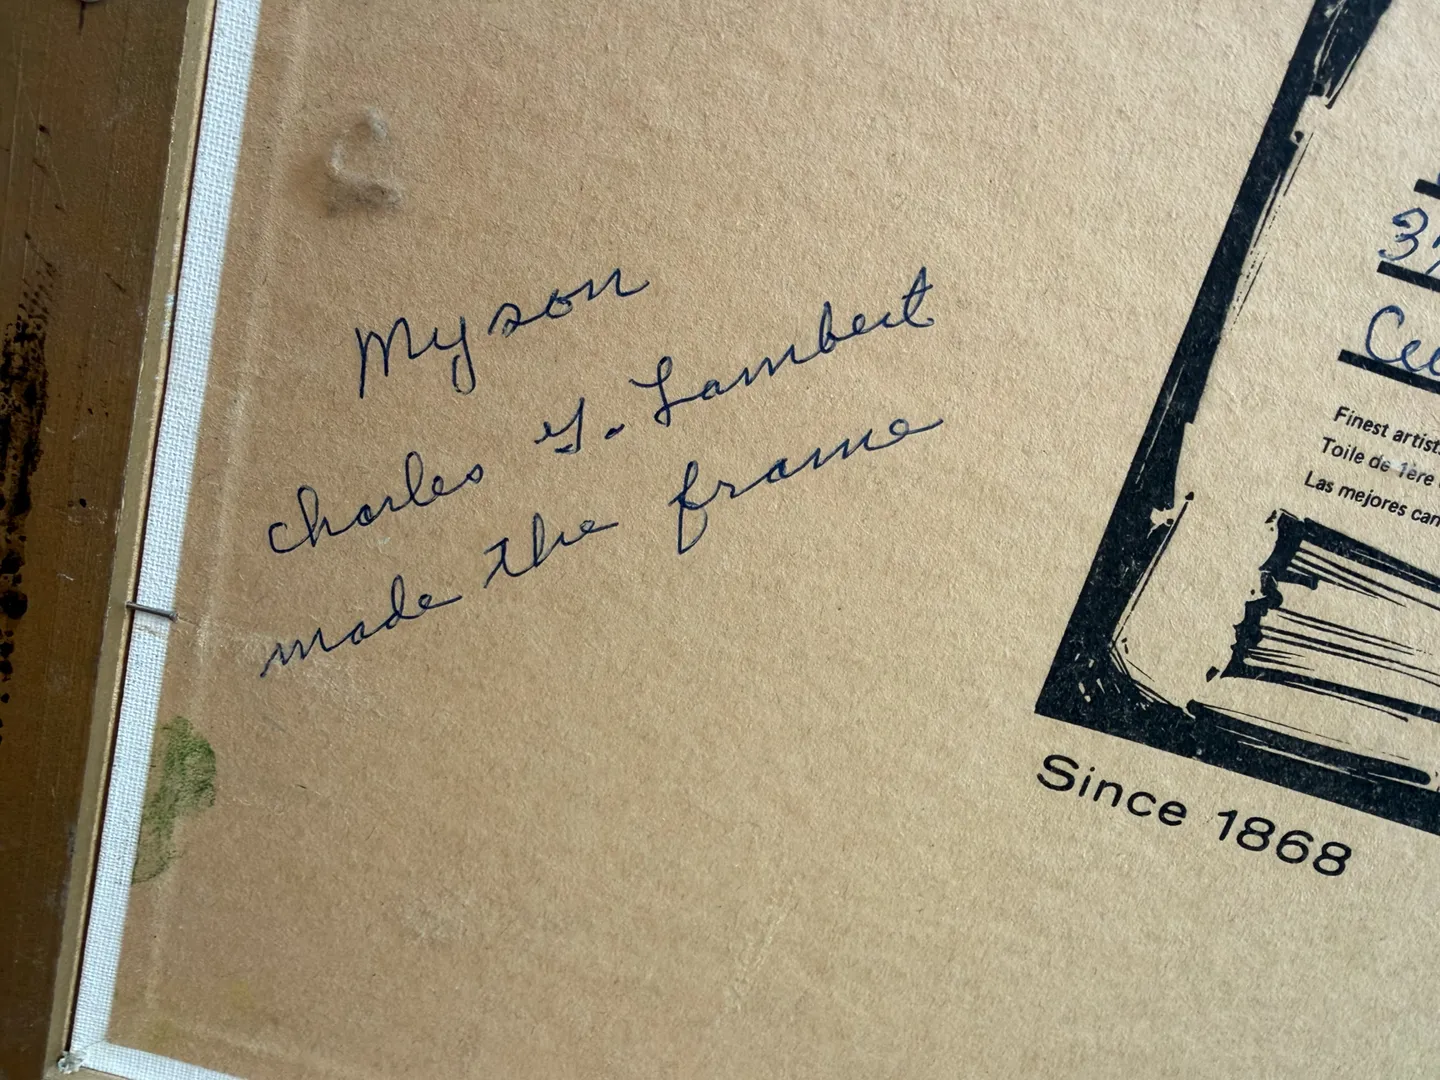 My son
Charles Y. Lambert
made the frame
Finest artist
Toile de 1ère
Las mejores can
Since 1868